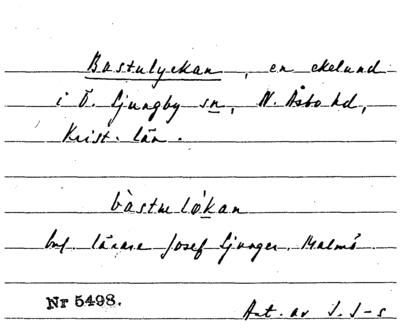 Bastulyckan, en ekelund
i Ö. Ljungby sn, N. Åsbo hd,
Krist. län.
bàstu lỳkan
lärare Josef Ljunger. Malmö
Nr 5498.
Ant. av J. J-s